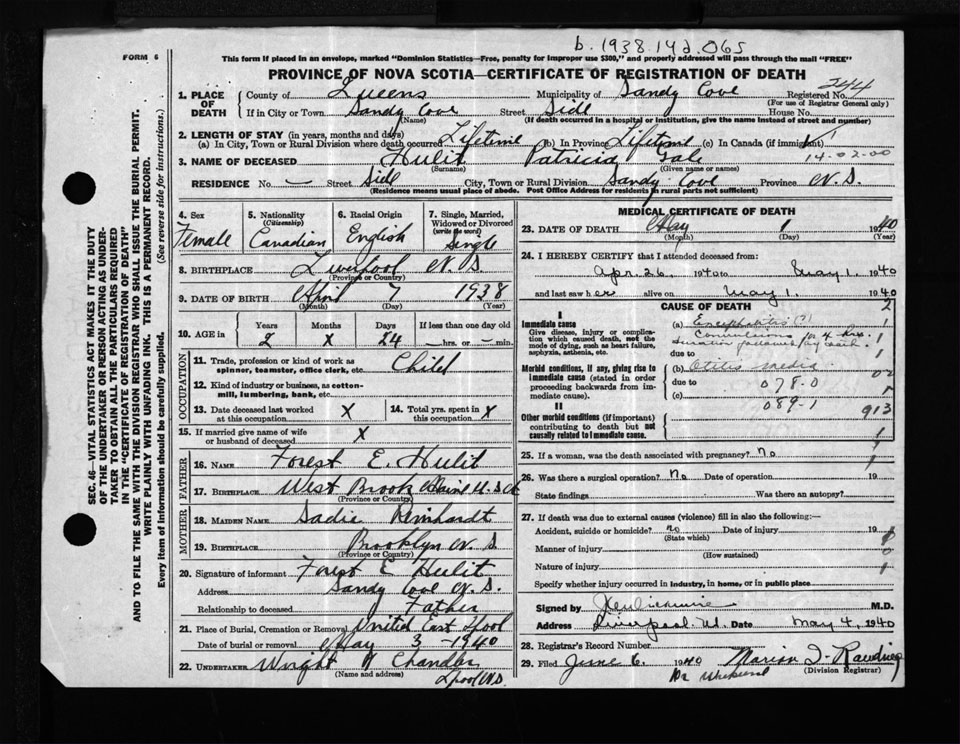 b. 1938.142.065
FORM 6
This form if placed in an envelope, marked "Dominion Statistics—Free, penalty for improper use $300," and properly addressed will pass through the mail "FREE"
PROVINCE OF NOVA SCOTIA—CERTIFICATE OF REGISTRATION OF DEATH
244
1. PLACE OF DEATH
County of Queens Municipality of Sandy Cove Registered No.
(For use of Registrar General only)
If in City or Town Sandy Cove Street Side House No.
(Name) (If death occurred in a hospital or institution, give the name instead of street and number)
2. LENGTH OF STAY (in years, months and days)
(a) In City, Town or Rural Division where death occurred Lifetime (b) In Province Lifetime (c) In Canada (if immigrant)
14-02-00
3. NAME OF DECEASED Hulit Patricia Gale
(Surname) (Given name or names)
RESIDENCE No. — Street Side City, Town or Rural Division Sandy Cove Province N.S.
(Residence means usual place of abode. Post Office Address for residents in rural parts not sufficient)
4. Sex Female
5. Nationality (Citizenship) Canadian
6. Racial Origin English
7. Single, Married, Widowed or Divorced (write the word) Single
8. BIRTHPLACE Liverpool N.S.
(Province or Country)
9. DATE OF BIRTH April 7 1938
(Month) (Day) (Year)
10. AGE in Years Months Days If less than one day old
2 X 24 — hrs. or — min.
OCCUPATION
11. Trade, profession or kind of work as spinner, teamster, office clerk, etc. Child
12. Kind of industry or business, as cotton-mill, lumbering, bank, etc.
13. Date deceased last worked at this occupation X
14. Total yrs. spent in this occupation X
15. If married give name of wife or husband of deceased X
FATHER
16. NAME Forest E. Hulit
17. BIRTHPLACE West Brook Maine U.S.A.
(Province or Country)
MOTHER
18. MAIDEN NAME Sadie Reinhardt
19. BIRTHPLACE Brooklyn N.S.
(Province or Country)
20. Signature of informant Forest E Hulit
Address Sandy Cove N.S.
Relationship to deceased Father
21. Place of Burial, Cremation or Removal United East Lpool
Date of burial or removal May 3 1940
22. UNDERTAKER Wright N Chandler
(Name and address) Lpool N.S.
MEDICAL CERTIFICATE OF DEATH
23. DATE OF DEATH May 1 1940
(Month) (Day) (Year)
24. I HEREBY CERTIFY that I attended deceased from:
Apr. 26. 1940 to May 1. 1940
and last saw her alive on May 1. 1940
CAUSE OF DEATH
I
Immediate cause
Give disease, injury or complication which caused death, not the mode of dying, such as heart failure, asphyxia, asthenia, etc.
(a) Encephalitis (?)
Convulsions 4 hrs.
duration followed by death.
due to
Morbid conditions, if any, giving rise to immediate cause (stated in order proceeding backwards from immediate cause).
(b) Otitis media
due to 078-0
(c) 089-1
913
II
Other morbid conditions (if important) contributing to death but not causally related to immediate cause.
25. If a woman, was the death associated with pregnancy? no
26. Was there a surgical operation? No Date of operation 19
State findings Was there an autopsy?
27. If death was due to external causes (violence) fill in also the following:
Accident, suicide or homicide? no Date of injury 19
(State which)
Manner of injury
(How sustained)
Nature of injury
Specify whether injury occurred in industry, in home, or in public place
Signed by M.D.
Address Liverpool Date May 4, 1940
28. Registrar's Record Number
29. Filed June 6. 1940 Marion
(Division Registrar)
SEC. 46—VITAL STATISTICS ACT MAKES IT THE DUTY
OF THE UNDERTAKER OR PERSON ACTING AS UNDERTAKER TO OBTAIN ALL THE PARTICULARS REQUIRED
IN THE "CERTIFICATE OF REGISTRATION OF DEATH"
AND TO FILE THE SAME WITH THE DIVISION REGISTRAR WHO SHALL ISSUE THE BURIAL PERMIT.
WRITE PLAINLY WITH UNFADING INK. THIS IS A PERMANENT RECORD.
Every item of information should be carefully supplied. (See reverse side for instructions.)